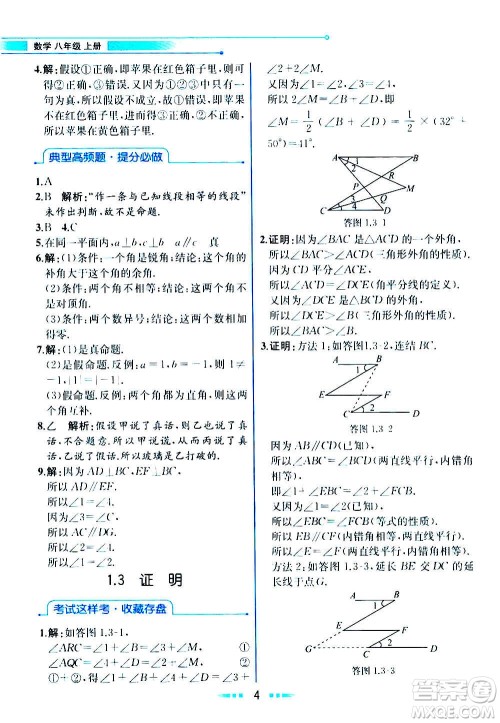 数学 八年级 上册
4.解:假设①正确,即苹果在红色箱子里,
则②正确,③错误.又因为三句话中
有一句为真,所以假设不成立,故①错
误.由①错误,可得③正确,即苹果
不在红色箱子里,而②错误,所以苹
果在黄色箱子里.
典型高频题·提分必做
1.A
2.B 解析:“作一条与已知线段相等的线段”
未作出判断,故不是命题.
3.B 4.C
5.在同一平面内,a⊥b,a⊥c b∥c 真
6.解:(1)条件:一个角是锐角;结论:这个角的
补角大于这个角的余角.
(2)条件:两个角不相等;结论:这两个角不
是对顶角.
(3)条件:两个数异号;结论:两个数相加
得零.
7.解:(1)是真命题.
(2)是假命题,反例:a=1,b=-1,|1|
=|-1|,1≠-1.
(3)是假命题,反例:两个角都为直角,两个
角互补.
8.乙 解析:假设甲说了真话,则乙也说了真
话,不合题意.所以甲说谎,乙、丙说了真
话,符合题意.所以玻璃是乙打破的.
9.解:因为AD⊥BC,EF⊥BC,
所以AD∥EF.
所以∠3=∠4.
因为AC∥DG,
所以∠1=∠4.
所以∠1=∠3.
1.3 证 明
考试这样考·收藏存盘
1.解:如答图1.3-1,
∠ARC=∠1+∠2+∠M, ①
∠AQC=∠2+∠3+∠4, ②
又因为∠1=∠2,∠3=∠4,
所以∠M=1/2(∠B+∠D),即
∠M=1/2(∠B+∠D)=1/2×(32°+
50°)=41°.
A B M C D 1 2 3 4
答图1.3-1
2.证明:因为∠BAC是△ACD的一个外角,
所以∠BAC>∠ACD(三角形外角的性质).
又因为∠DCE=∠ACD(角平分线的定义),
所以∠BAC>∠DCE(等量代换).
又因为∠DCE是△BCD的一个外角,
所以∠DCE>∠B(三角形外角的性质).
所以∠BAC>∠B(不等式的性质).
3.证明:方法1:如答图1.3-2,连结BC.
A B 1 E F C D 2
答图1.3-2
因为AB∥CD(已知),
所以∠ABC=∠BCD(两直线平行,内错角
相等).
又因为∠1=∠2(已知),
所以∠EBC=∠FCB(等式的性质).
所以BE∥CF(内错角相等,两直线平行).
所以∠E=∠F(两直线平行,内错角相等).
方法2:如答图1.3-3,延长BE交DC的延
长线于点G.
A B 1 E F G C D 2
答图1.3-3
4
答案圈
MXQE.COM